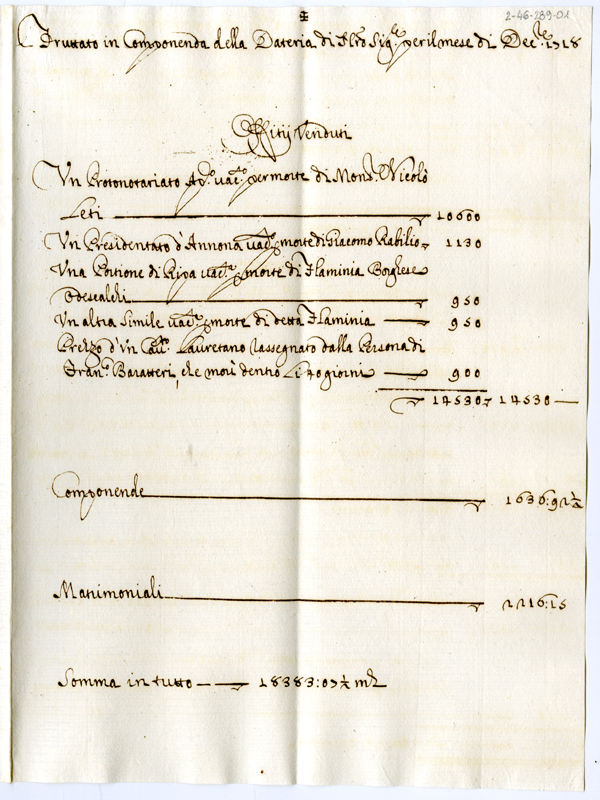 2-46-289-01
Fruttato in Componenda della Dateria di Nro Sig.e per il mese di Dec.re 1718
Offitij Venduti
Vn Protonotariato Ap.o vac.o per morte di Mons. Nicolò
Leti 10600
Vn Presidentato d'Annona vac.o p morte di Giacomo Rabilio 1130
Vna Portione di Ripa vac.a p morte di Flaminia Borghese
Odescalchi 950
Vn altra simile vac.a p morte di detta Flaminia 950
Prezzo d'Vn Cau. Lauretano rassegnato dalla Persona di
Fran.o Baratteri, che morì dentro Li 40 giorni 900
14530 14530
Componende 1636:92½
Matrimoniali 2216:15
Somma in tutto 18383:07½ m.ta